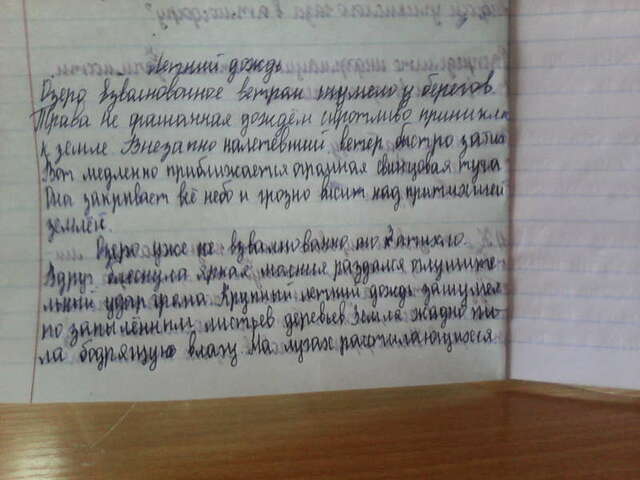 Летний дождь
Озеро взвалнованное ветром шумело у берегов.
Трава не
дождём сиротливо приникла
к земле. Внезапно налетевший ветер быстро затих
Вот медленно приближается огромная свинцовая туча
Она закрывает всё небо и грозно висит над притихшей
землёй.
Озеро уже не взвалнованно
затихло.
Вдруг блеснула яркая молния раздался оглушите-
льный удар грома. Крупный летний дождь зашумел
по запылённым листьев деревьев Земля жадно пи-
ла бодрящую влагу